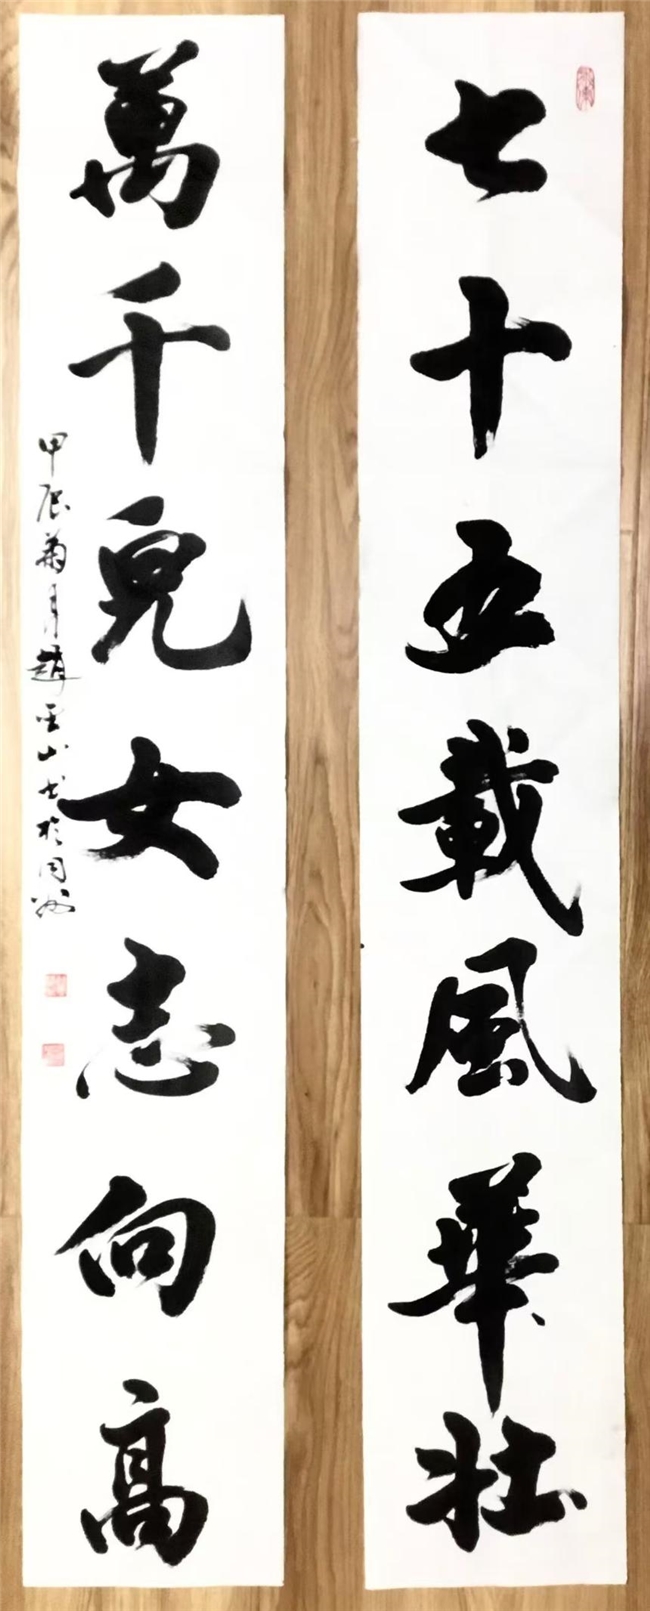 七十五載風華壯
萬千兒女志向高
甲辰菊月趙雲山書於同州